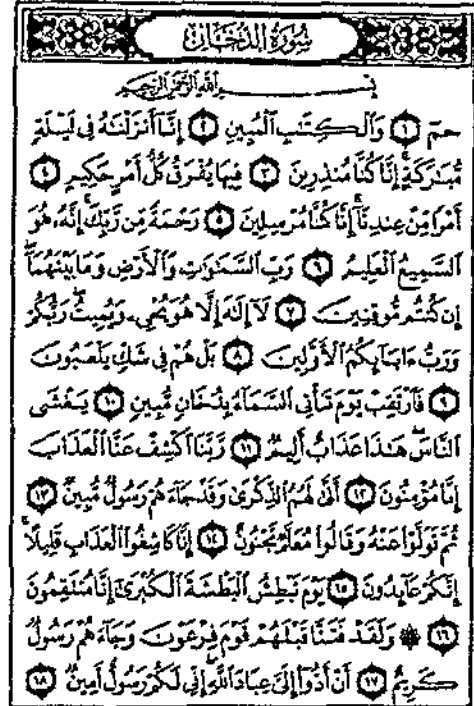 سُورَةُ الدُّخَانِ
بِسْمِ اللَّهِ الرَّحْمَٰنِ الرَّحِيمِ
حمٓ ﴿١﴾ وَٱلْكِتَٰبِ ٱلْمُبِينِ ﴿٢﴾ إِنَّآ أَنزَلْنَٰهُ فِى لَيْلَةٍ
مُّبَٰرَكَةٍ إِنَّا كُنَّا مُنذِرِينَ ﴿٣﴾ فِيهَا يُفْرَقُ كُلُّ أَمْرٍ حَكِيمٍ ﴿٤﴾
أَمْرًا مِّنْ عِندِنَآ إِنَّا كُنَّا مُرْسِلِينَ ﴿٥﴾ رَحْمَةً مِّن رَّبِّكَ إِنَّهُۥ هُوَ
ٱلسَّمِيعُ ٱلْعَلِيمُ ﴿٦﴾ رَبِّ ٱلسَّمَٰوَٰتِ وَٱلْأَرْضِ وَمَا بَيْنَهُمَآ
إِن كُنتُم مُّوقِنِينَ ﴿٧﴾ لَآ إِلَٰهَ إِلَّا هُوَ يُحْىِۦ وَيُمِيتُ رَبُّكُمْ
وَرَبُّ ءَابَآئِكُمُ ٱلْأَوَّلِينَ ﴿٨﴾ بَلْ هُمْ فِى شَكٍّ يَلْعَبُونَ
﴿٩﴾ فَٱرْتَقِبْ يَوْمَ تَأْتِى ٱلسَّمَآءُ بِدُخَانٍ مُّبِينٍ ﴿١٠﴾ يَغْشَى
ٱلنَّاسَ هَٰذَا عَذَابٌ أَلِيمٌ ﴿١١﴾ رَّبَّنَا ٱكْشِفْ عَنَّا ٱلْعَذَابَ
إِنَّا مُؤْمِنُونَ ﴿١٢﴾ أَنَّىٰ لَهُمُ ٱلذِّكْرَىٰ وَقَدْ جَآءَهُمْ رَسُولٌ مُّبِينٌ ﴿١٣﴾
ثُمَّ تَوَلَّوْا۟ عَنْهُ وَقَالُوا۟ مُعَلَّمٌ مَّجْنُونٌ ﴿١٤﴾ إِنَّا كَاشِفُوا۟ ٱلْعَذَابِ قَلِيلًا
إِنَّكُمْ عَآئِدُونَ ﴿١٥﴾ يَوْمَ نَبْطِشُ ٱلْبَطْشَةَ ٱلْكُبْرَىٰٓ إِنَّا مُنتَقِمُونَ
﴿١٦﴾ ۞ وَلَقَدْ فَتَنَّا قَبْلَهُمْ قَوْمَ فِرْعَوْنَ وَجَآءَهُمْ رَسُولٌ
كَرِيمٌ ﴿١٧﴾ أَنْ أَدُّوٓا۟ إِلَىَّ عِبَادَ ٱللَّهِ إِنِّى لَكُمْ رَسُولٌ أَمِينٌ ﴿١٨﴾